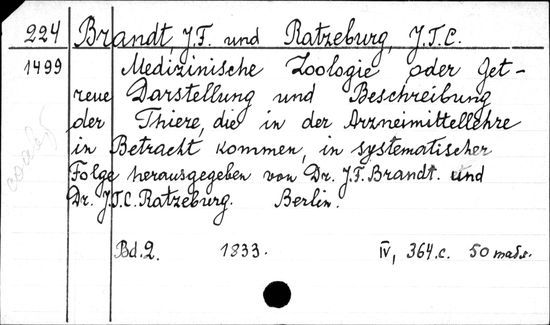 224 Brandt, J.F. und Ratzeburg, J.T.C.
1499 Medizinische Zoologie, oder Get-
reue Darstellung und Beschreibung
der Thiere, die in der Arzneimittellehre
in Betracht kommen, in systematischer
Folge herausgegeben von Dr. J.F. Brandt. und
Dr. J.T.C. Ratzeburg. Berlin.
Bd. 2. 1833. IV, 364.c. 50